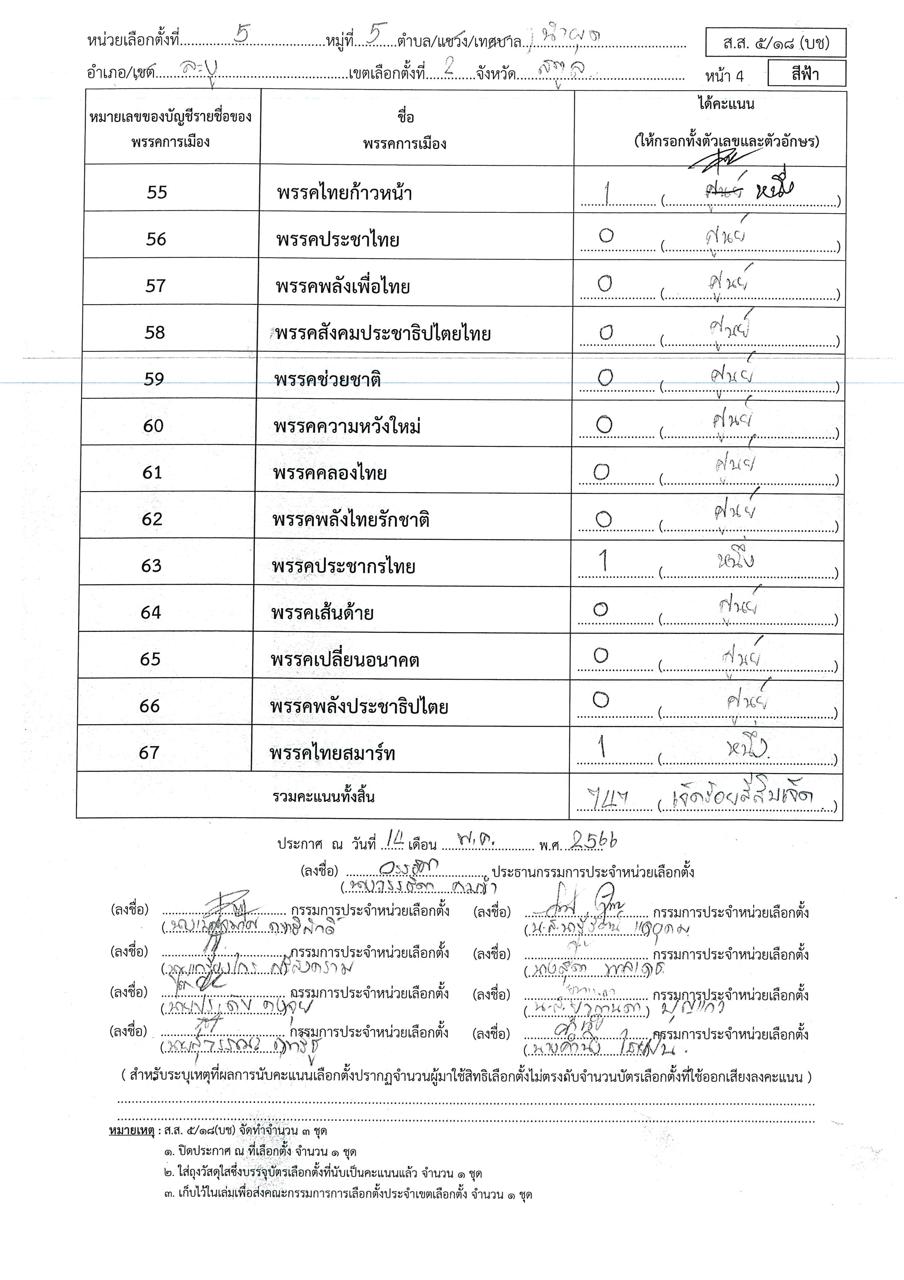 หน่วยเลือกตั้งที่ 5 หมู่ที่ 5 ตำบล/แขวง/เทศบาล น้ำผุด ส.ส. ๕/๑๘ (บช)
อำเภอ/เขต ละงู เขตเลือกตั้งที่ 2 จังหวัด สตูล หน้า 4 สีฟ้า
หมายเลขของบัญชีรายชื่อของพรรคการเมือง ชื่อพรรคการเมือง ได้คะแนน (ให้กรอกทั้งตัวเลขและตัวอักษร)
55 พรรคไทยก้าวหน้า 1 (ศูนย์ หนึ่ง)
56 พรรคประชาไทย 0 (ศูนย์)
57 พรรคพลังเพื่อไทย 0 (ศูนย์)
58 พรรคสังคมประชาธิปไตยไทย 0 (ศูนย์)
59 พรรคช่วยชาติ 0 (ศูนย์)
60 พรรคความหวังใหม่ 0 (ศูนย์)
61 พรรคคลองไทย 0 (ศูนย์)
62 พรรคพลังไทยรักชาติ 0 (ศูนย์)
63 พรรคประชากรไทย 1 (หนึ่ง)
64 พรรคเส้นด้าย 0 (ศูนย์)
65 พรรคเปลี่ยนอนาคต 0 (ศูนย์)
66 พรรคพลังประชาธิปไตย 0 (ศูนย์)
67 พรรคไทยสมาร์ท 1 (หนึ่ง)
รวมคะแนนทั้งสิ้น 747 (เจ็ดร้อยสี่สิบเจ็ด)
ประกาศ ณ วันที่ 14 เดือน พ.ค. พ.ศ. 2566
(ลงชื่อ) ประธานกรรมการประจำหน่วยเลือกตั้ง
(ลงชื่อ) กรรมการประจำหน่วยเลือกตั้ง (ลงชื่อ) กรรมการประจำหน่วยเลือกตั้ง
(ลงชื่อ) กรรมการประจำหน่วยเลือกตั้ง (ลงชื่อ) กรรมการประจำหน่วยเลือกตั้ง
(ลงชื่อ) กรรมการประจำหน่วยเลือกตั้ง (ลงชื่อ) กรรมการประจำหน่วยเลือกตั้ง
(ลงชื่อ) กรรมการประจำหน่วยเลือกตั้ง (ลงชื่อ) กรรมการประจำหน่วยเลือกตั้ง
( สำหรับระบุเหตุที่ผลการนับคะแนนเลือกตั้งปรากฏจำนวนผู้มาใช้สิทธิเลือกตั้งไม่ตรงกับจำนวนบัตรเลือกตั้งที่ใช้ออกเสียงลงคะแนน )
หมายเหตุ : ส.ส. ๕/๑๘(บช) จัดทำจำนวน ๓ ชุด
๑. ปิดประกาศ ณ ที่เลือกตั้ง จำนวน ๑ ชุด
๒. ใส่ถุงวัสดุใสซึ่งบรรจุบัตรเลือกตั้งที่นับเป็นคะแนนแล้ว จำนวน ๑ ชุด
๓. เก็บไว้ในเล่มเพื่อส่งคณะกรรมการการเลือกตั้งประจำเขตเลือกตั้ง จำนวน ๑ ชุด